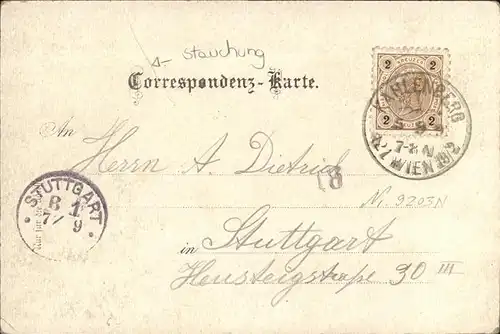 Stauchung
Correspondenz-Karte.
2 KREUZER 2
2 2
KAHLENBERG
7-8 N
WIEN 19/2
An
Herrn A. Dietrich
18
STUTTGART
B 1
7/9
Nr. 9203N
in Stuttgart
Heusteigstraße 90 III